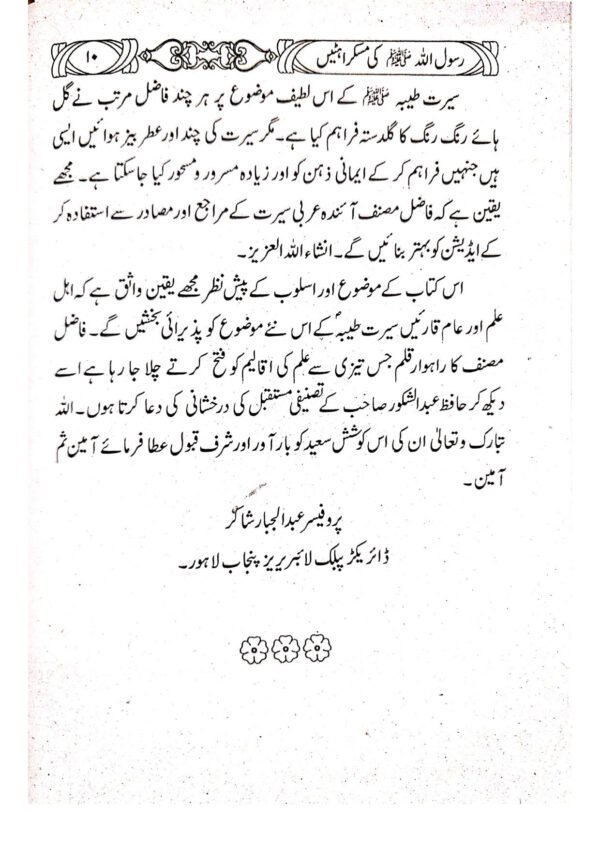 رسول اللہ ﷺ کی مسکراہٹیں
۱۰
سیرت طیبہ ﷺ کے اس لطیف موضوع پر ہر چند فاضل مرتب نے گل
ہائے رنگ رنگ کا گلدستہ فراہم کیا ہے۔ مگر سیرت کی چند اور عطر بیز ہوائیں ایسی
ہیں جنہیں فراہم کر کے ایمانی ذہن کو اور زیادہ مسرور و مسحور کیا جا سکتا ہے۔ مجھے
یقین ہے کہ فاضل مصنف آئندہ عربی سیرت کے مراجع اور مصادر سے استفادہ کر
کے ایڈیشن کو بہتر بنائیں گے۔ انشاء اللہ العزیز۔
اس کتاب کے موضوع اور اسلوب کے پیش نظر مجھے یقین واثق ہے کہ اہل
علم اور عام قارئیں سیرت طیبہؐ کے اس نئے موضوع کو پذیرائی بخشیں گے۔ فاضل
مصنف کا راہوار قلم جس تیزی سے علم کی اقالیم کو فتح کرتے چلا جا رہا ہے اسے
دیکھ کر حافظ عبدالشکور صاحب کے تصنیفی مستقبل کی درخشانی کی دعا کرتا ہوں۔ اللہ
تبارک وتعالیٰ ان کی اس کوشش سعید کو بار آور اور شرف قبول عطا فرمائے آمین ثم
آمین۔
پروفیسر عبدالجبار شاکر
ڈائریکٹر پبلک لائبریریز پنجاب لاہور۔